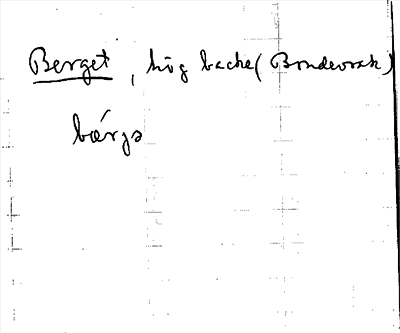 Berget, hög backe (Bondevrak)
bǽrgə